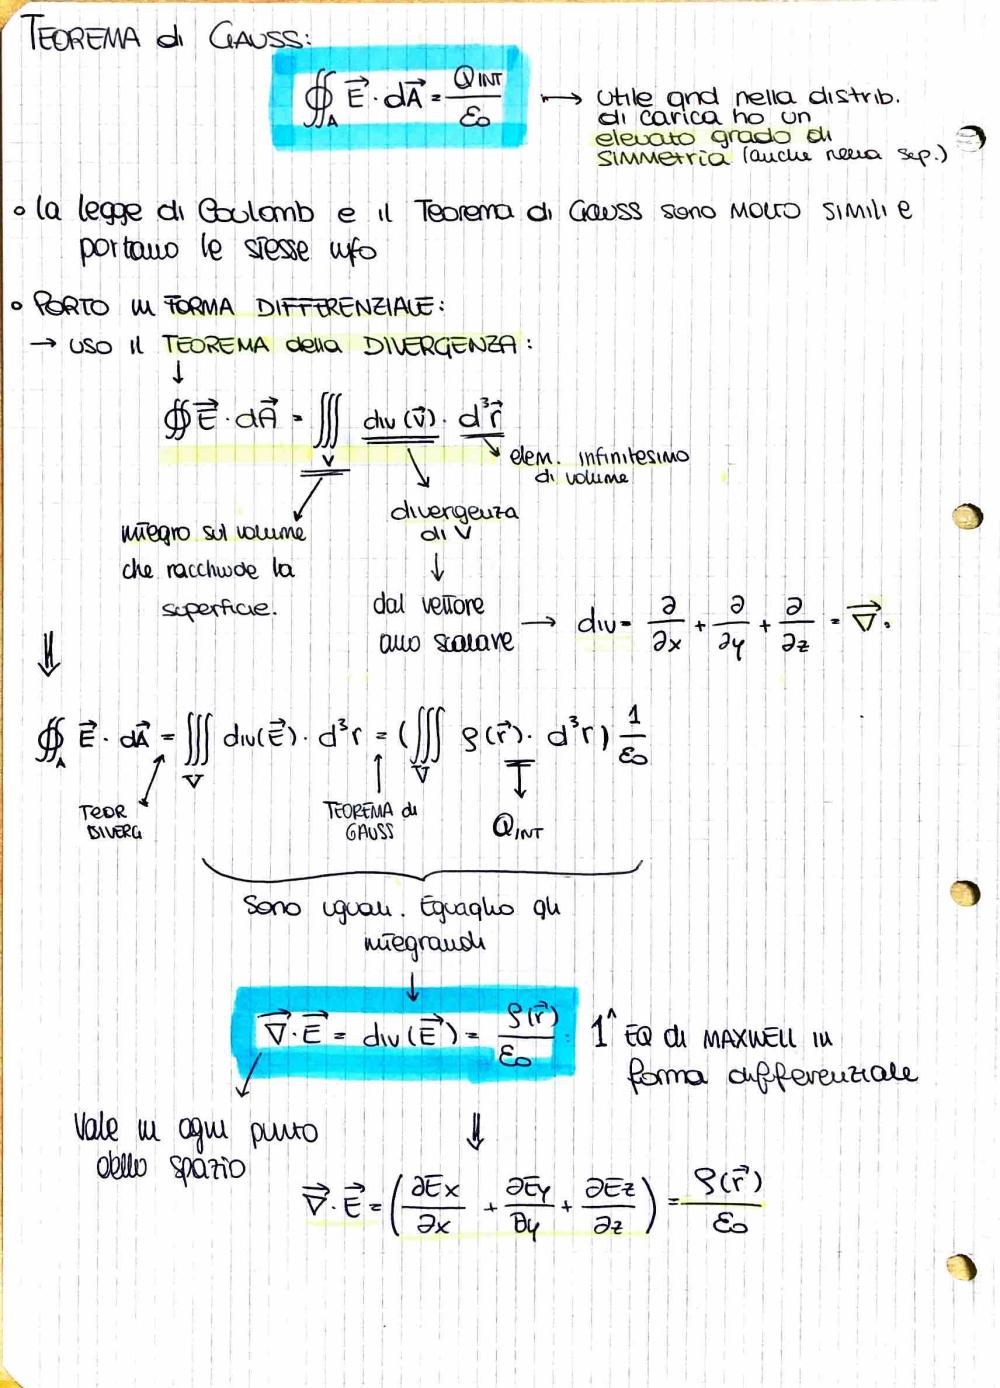 TEOREMA di GAUSS:
∯_A E⃗ · dA⃗ = Q_INT / ε₀ → utile qnd nella distrib.
di carica ho un
elevato grado di
simmetria (anche nella sup.)
• la legge di Coulomb e il Teorema di Gauss sono MOLTO SIMILI e
portano le stesse info
• PORTO in FORMA DIFFERENZIALE:
→ USO IL TEOREMA della DIVERGENZA:
↓
∯ E⃗ · dA⃗ = ∭_V div(v⃗) · d³r⃗
elem. infinitesimo
di volume
integro sul volume
che racchiude la
superficie.
divergenza
di V
↓
dal vettore
allo scalare → div = ∂/∂x + ∂/∂y + ∂/∂z = ∇⃗ ·
⇓
∯_A E⃗ · dA⃗ = ∭_V div(E⃗) · d³r = (∭_V ρ(r⃗) · d³r) 1/ε₀
TEOR
DIVERG
TEOREMA di
GAUSS
Q_INT
Sono uguali. Eguaglio gli
integrandi
↓
∇⃗ · E⃗ = div(E⃗) = ρ(r⃗)/ε₀ 1^ EQ di MAXWELL in
forma differenziale
Vale in ogni punto
dello spazio
⇓
∇⃗ · E⃗ = (∂Ex/∂x + ∂Ey/∂y + ∂Ez/∂z) = ρ(r⃗)/ε₀